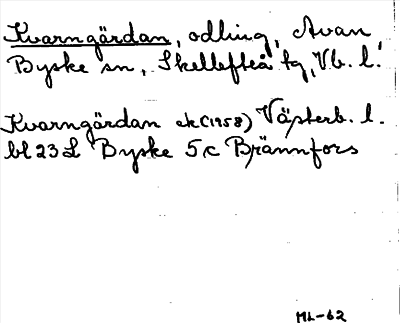 Kvarngärdan, odling, Avan
Byske sn, Skellefteå tg, Vb. l.
Kvarngärdan ek (1958) Västerb. l.
bl 23 L Byske 5c Brännfors
ML-62